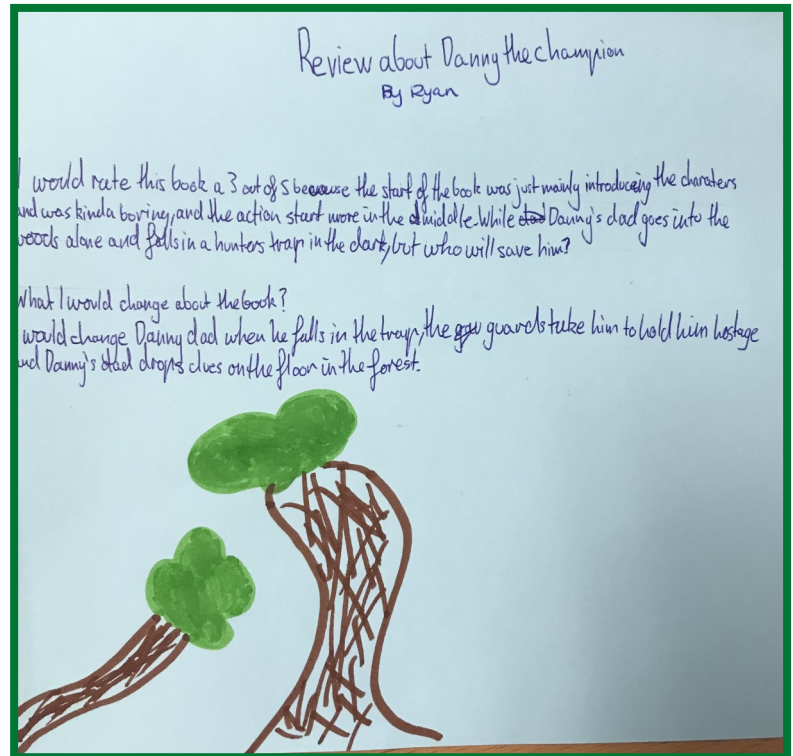 Review about Danny the champion
By Ryan
I would rate this book a 3 out of 5 because the start of the book was just mainly introduceing the charaters
and was kinda boring, and the action start more in the middle. While Danny's dad goes into the
woods alone and falls in a hunters trap in the dark, but who will save him?
What I would change about the book?
I would change Danny dad when he falls in the trap, the guards take him to hold him hostage
and Danny's dad drops clues on the floor in the forest.